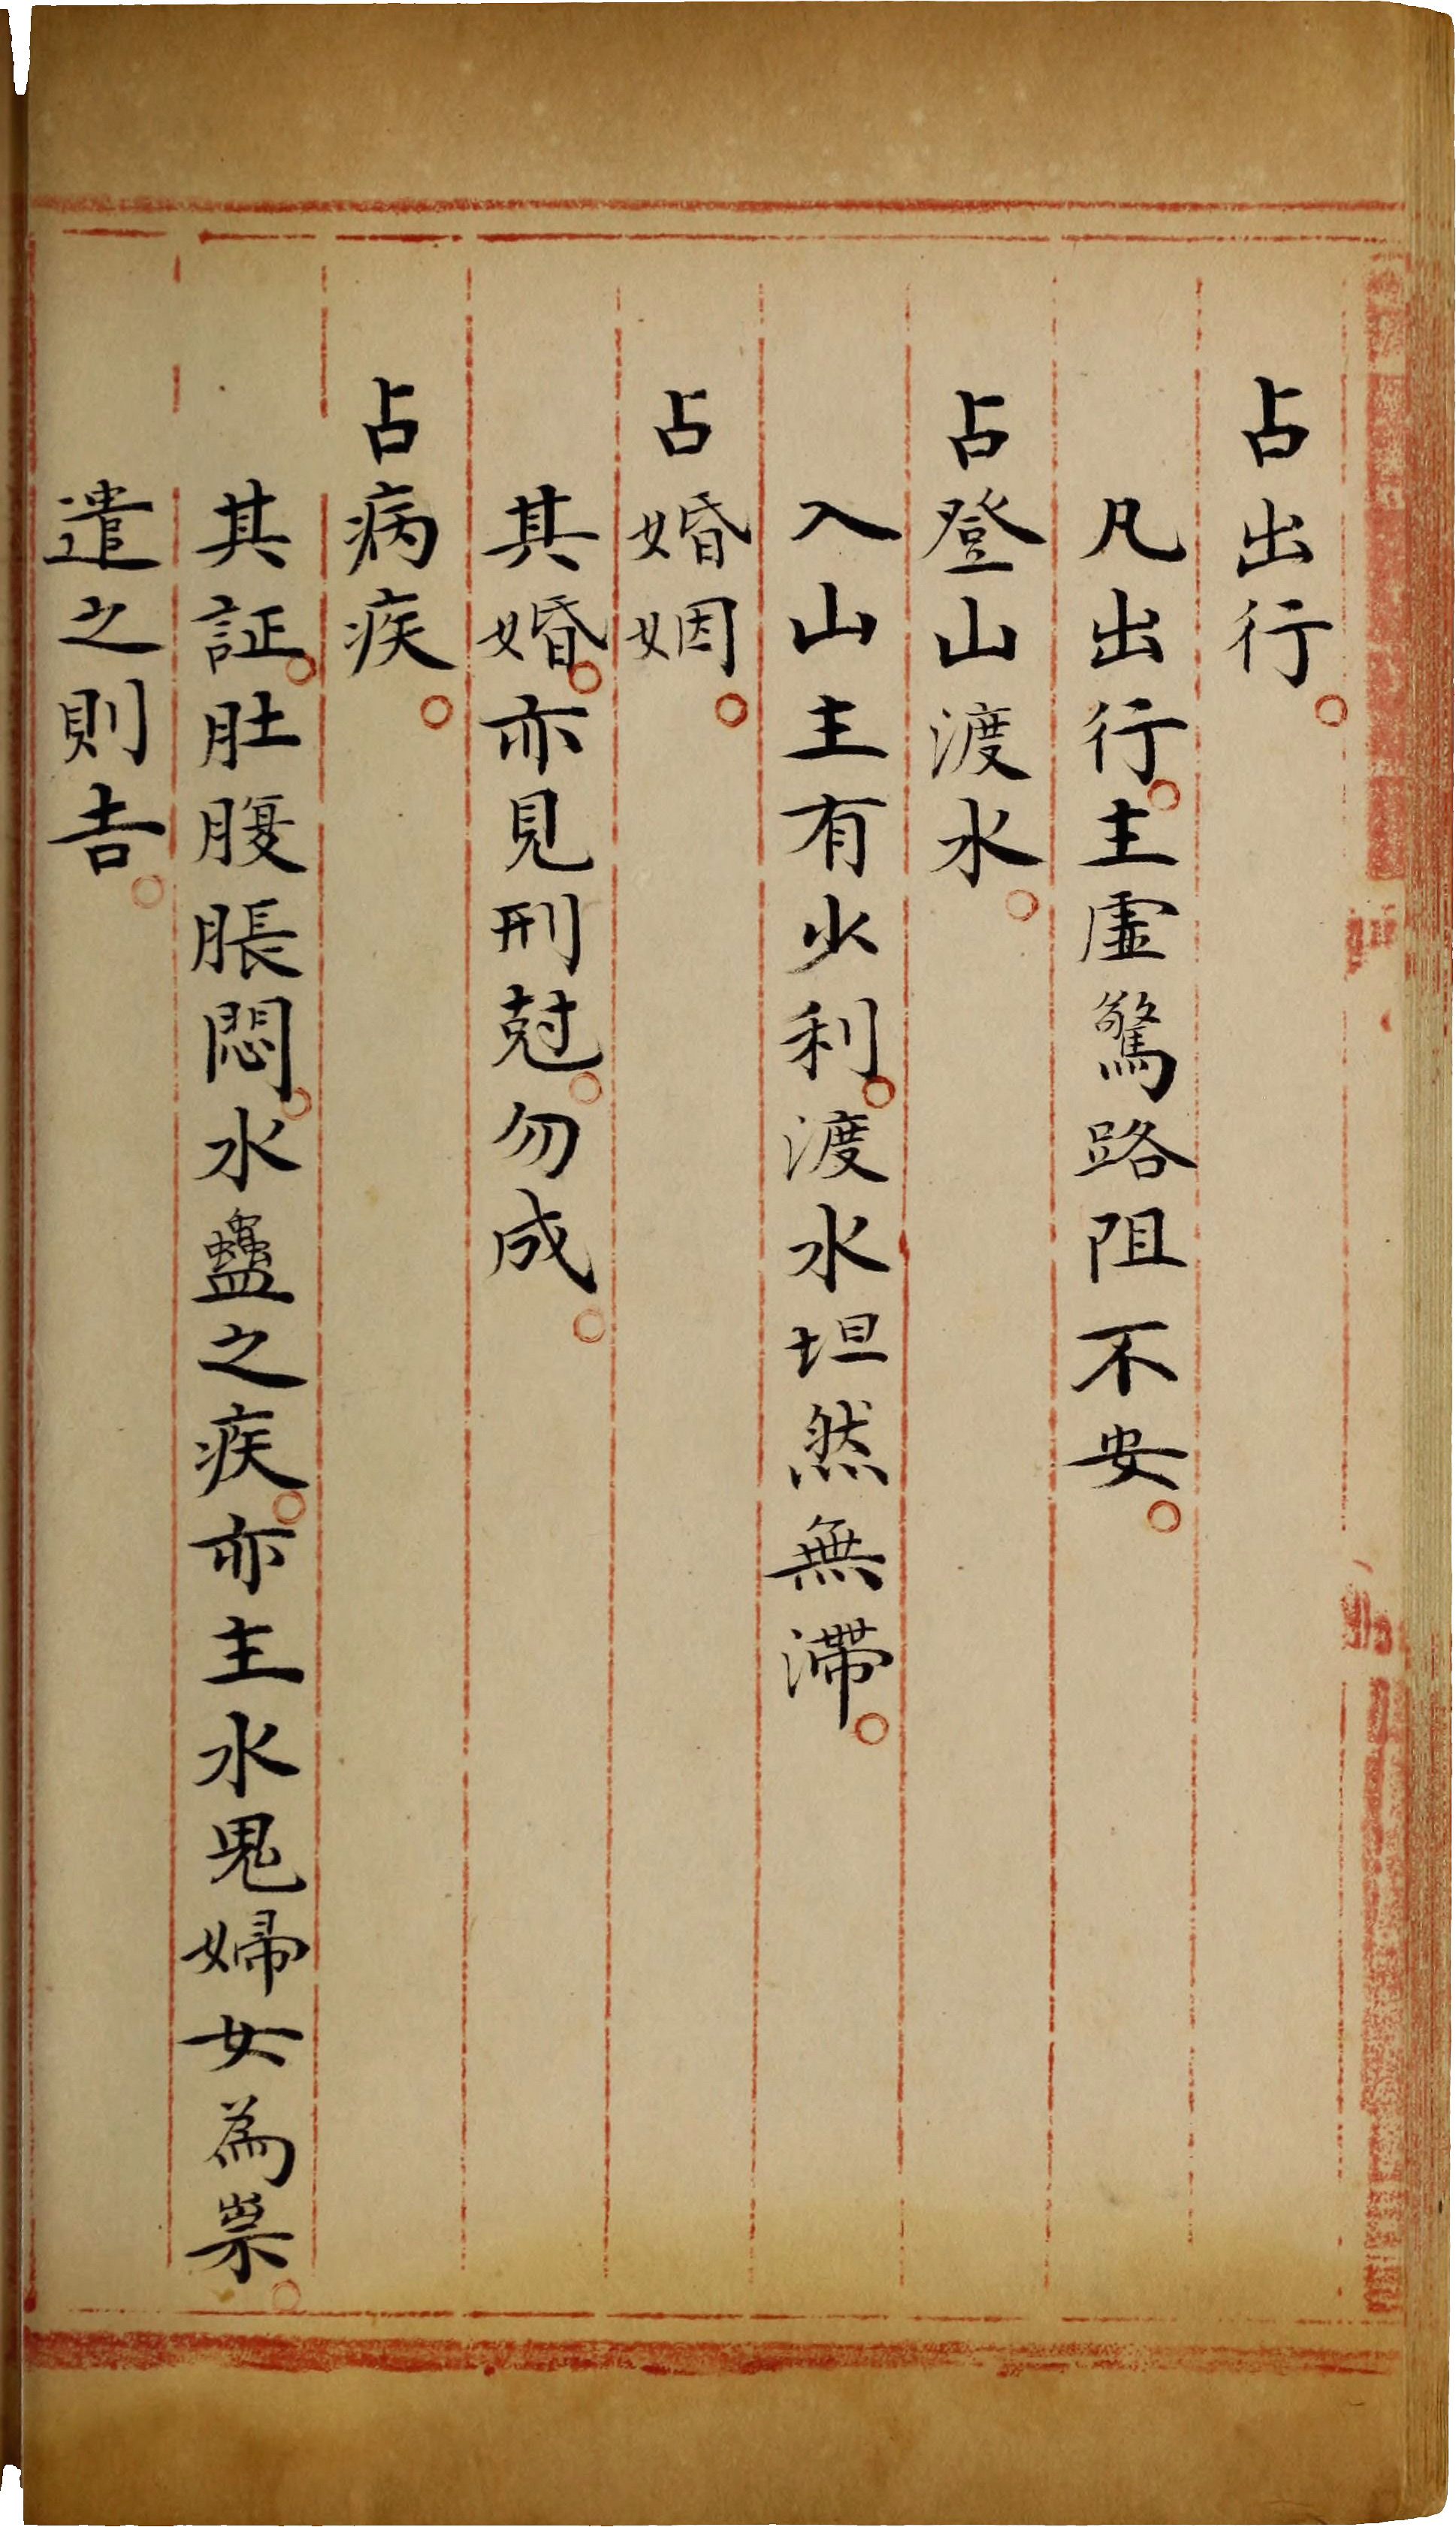 占出行。
凡出行。主虛驚路阻不安。
占登山渡水。
入山主有少利。渡水坦然無滯。
占婚姻。
其婚。亦見刑尅。勿成。
占病疾。
其証。肚腹脹悶。水蠱之疾。亦主水鬼婦女為祟。
遣之則吉。